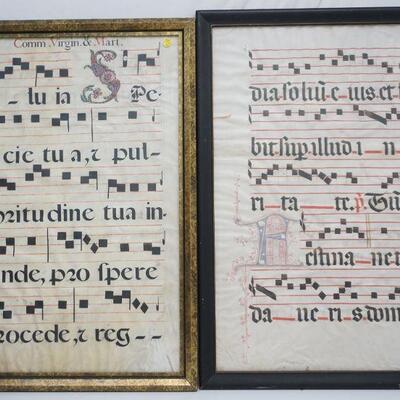 Comm. Virgin. & Mart.
- lu ia S Pe -
cie tu a, ⁊ pul-
hritudine tua in
nde, pro spere
rocede, ⁊ reg - -
dia solũ e ius. et
bit sup illud i - n
ri - ta - te.
da - ne ri s dom